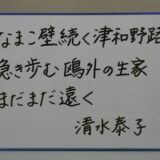 なまこ壁続く津和野路
急き歩む鴎外の生家
まだまだ遠く
清水泰子